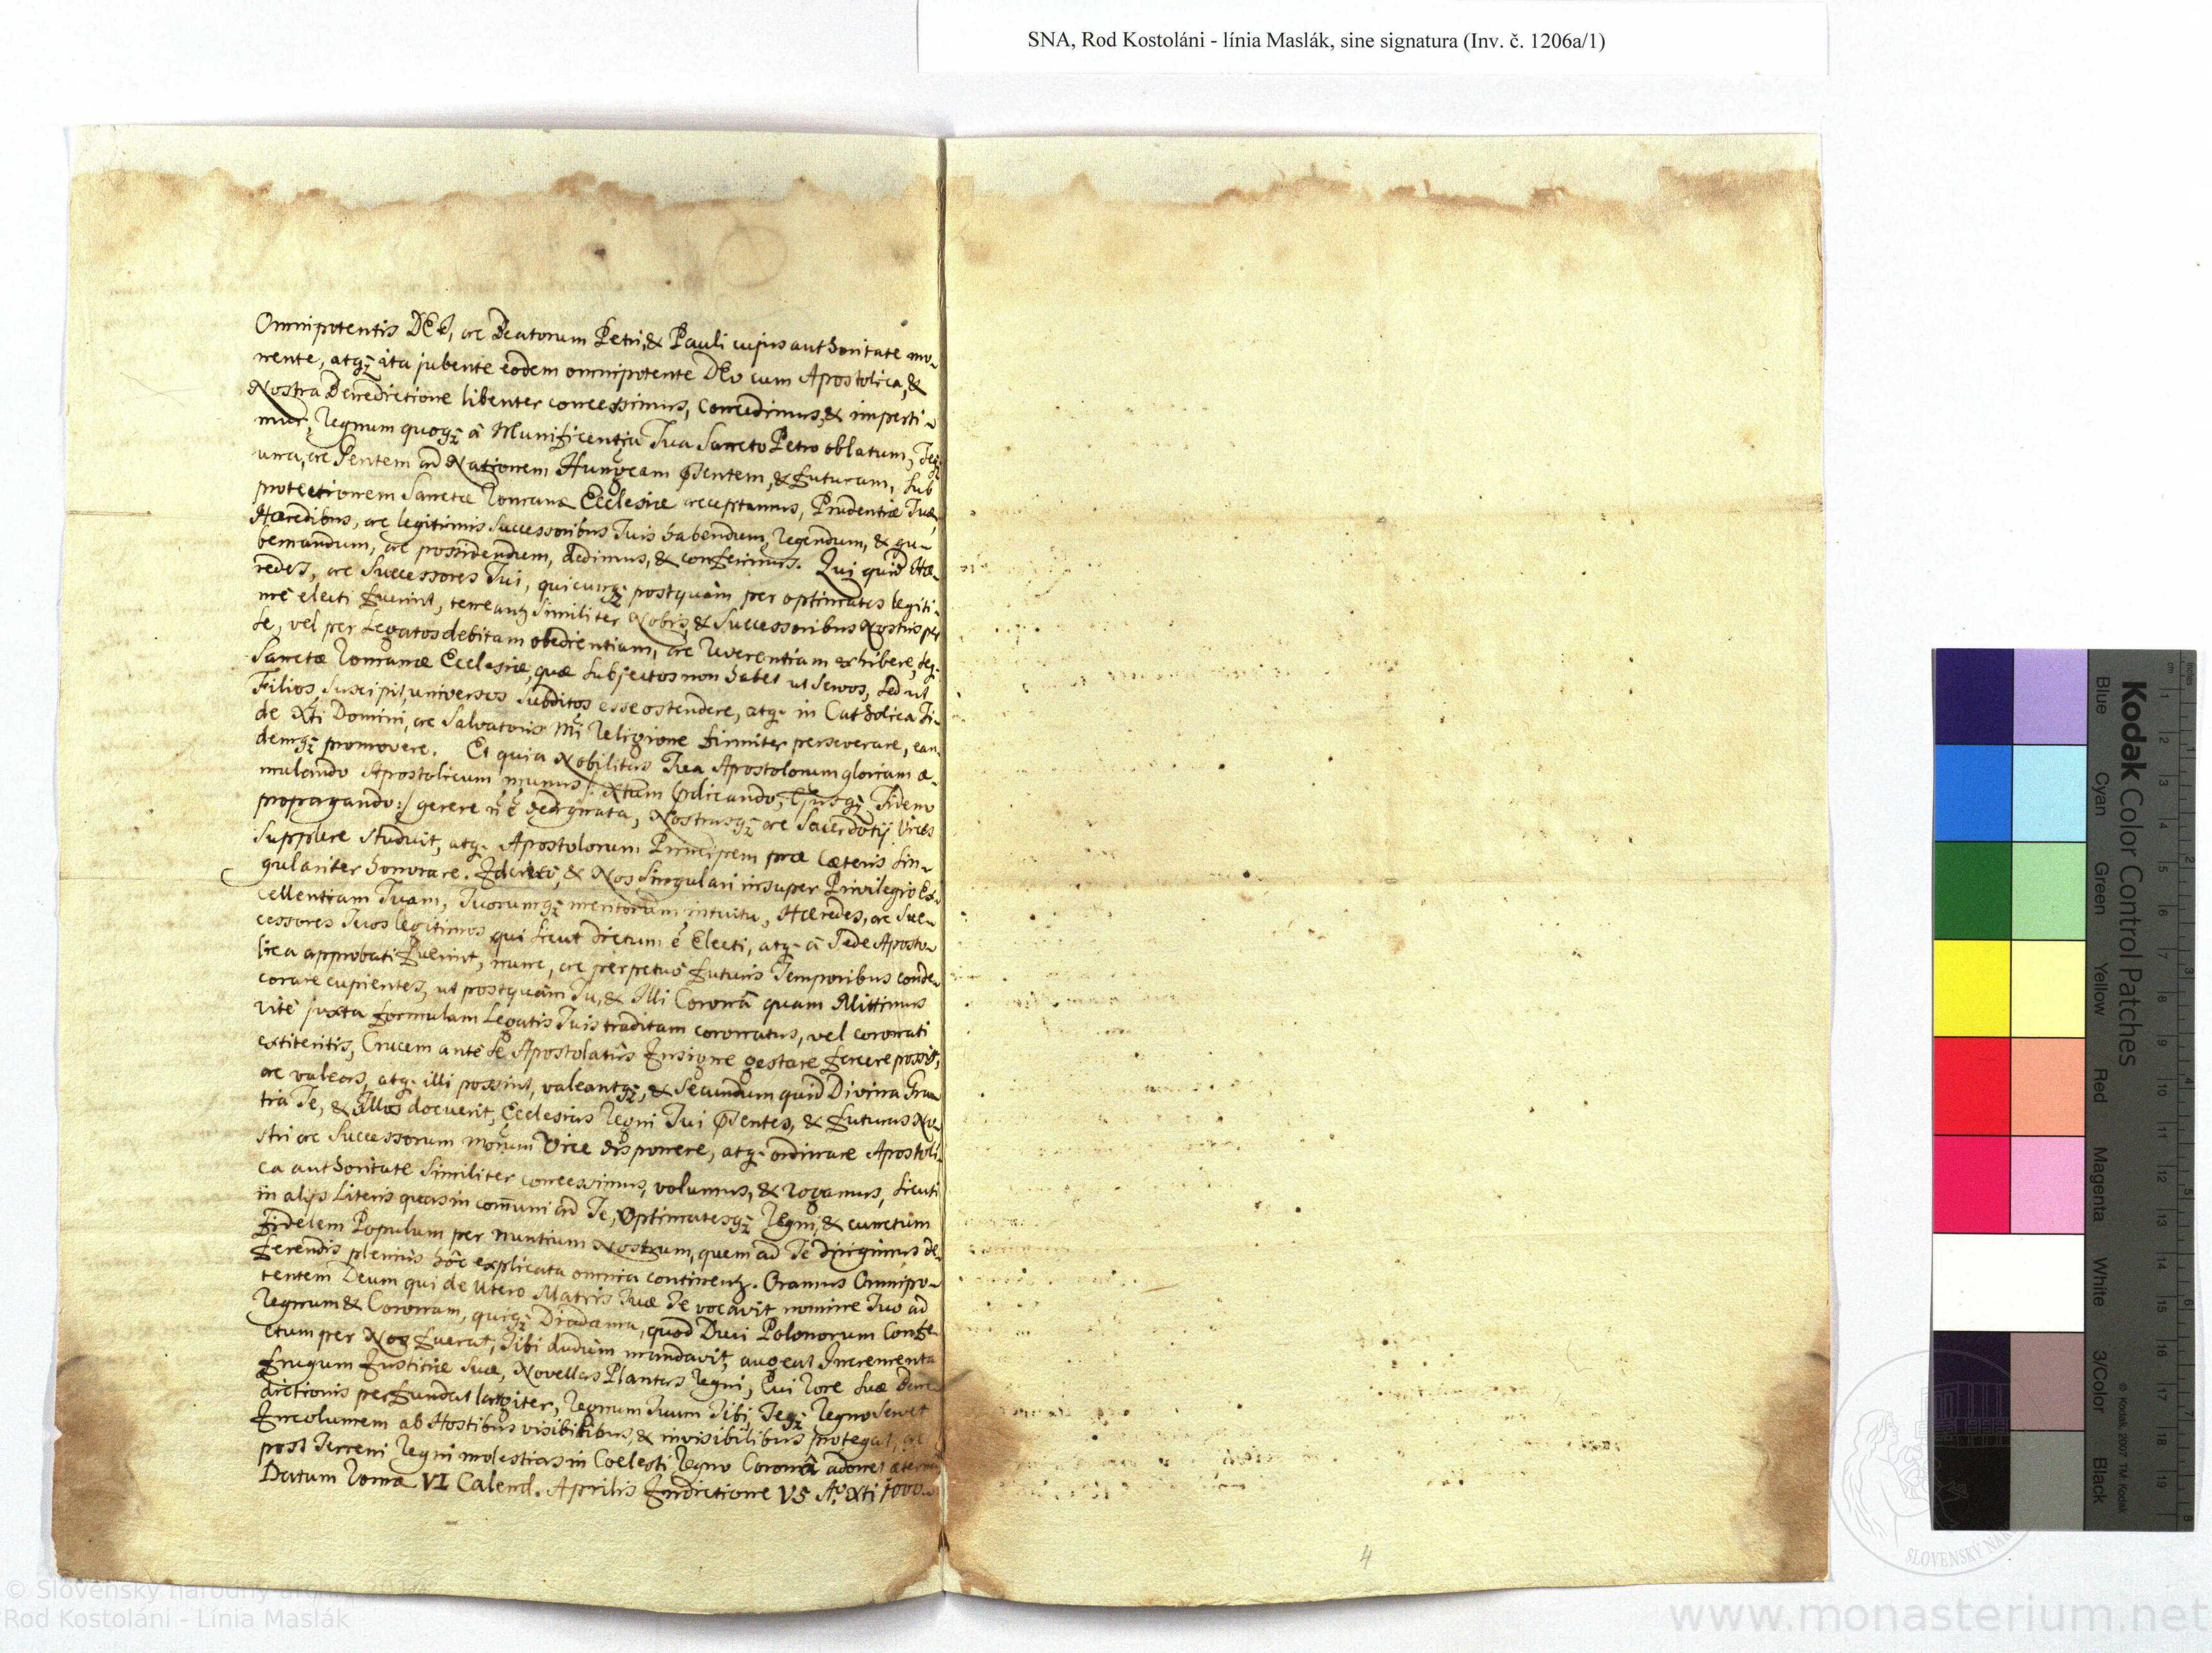 SNA, Rod Kostoláni - línia Maslák, sine signatura (Inv. č. 1206a/1)
Omnipotentis DEI, ac Beatorum Petri, & Pauli cujus authoritate mo-
nente, atq₃ ita jubente eodem omnipotente DEo cum Apostolica, &
Nostra Benedictione libenter concessimus, concedimus, & imperti-
mur, Regnum quoq₃ â Munificentia Tua Sancto Petro oblatum, Teq₃
una, ac Gentem ad Nationem Hungcam pntem, & futuram, sub
protectionem Sanctæ Romanæ Ecclesiæ acceptamus, Prudentiæ Tuæ
Hæredibus, ac legitimis Successoribus Tuis habendum, Regendum, & gu-
bernandum, ac possidendum, dedimus, & conferimus. Qui quid Hæ-
redes, ac Successores Tui, quicunq₃ postquàm per optimates legiti-
mè electi fuerint, teneant͛ similiter Nobis, & Successoribus Nostris per
se, vel per Legatos debitam obedientiam, ac Reverentiam exhibere, seq.
Sanctæ Romanæ Ecclesiæ, quæ subjectos non habet ut servos, sed ut
Filios, suscipit universos subditos esse ostendere, atq. in Catholica Fi-
de Xti Domini, ac Salvatoris Nri Religione firmiter perseverare, ean-
demq₃ promovere. Et quia Nobilitas Tua Apostolorum gloriam æ-
mulando Apostolicum munus /: Xtum pdicando, Ejusq₃ Fidem
propagando :/ gerere ñ ē dedignata, Nostrasq₃ ac Sacerdotij Vices
supplere studuit, atq. Apostolorum Principem præ cæteris sin-
gulariter honorare. Idcircò, & Nos singulari insuper Privilegio Ex-
cellentiam Tuam, Tuorumq₃ meritorum intuitu, Hæredes, ac Suc-
cessores Tuos legitimos qui sicut dictum ē Electi, atq. â Sede Aposto-
lica approbati fuerint, nunc, ac perpetuò futuris Temporibus conde-
corare cupientes, ut postquàm Tu, & Illi Coronâ quam Mittimus
ritè juxta formulam Legatis Tuis traditam coronatus, vel coronati
extiteritis, Crucem antè se Apostolatûs Insigne gestare facere possis,
ac valeas, atq. illi possint, valeantq₃, & secundum quid Divina Gra-
tia Te, & Illos docuerit, Ecclesias Regni Tui pntes, & futuras No-
stri ac Successorum nrorum Vice disponere, atq. ordinare Apostoli-
ca authoritate similiter concessimus, volumus, & rogamus, sicuti
in alijs Literis quas in coṁuni ad Te, Optimatesq₃ Regni, & cunctum
fidelem Populum per Nuntium Nostrum, quem ad Te dirigimus de-
ferendis pleniùs hôc explicata omnia continent͛. Oramus Omnipo-
tentem Deum qui de Utero Matris Tuæ Te vocavit nomine Tuo ad
Regnum & Coronam, quiq₃ Diadama, quod Duci Polonorum Confe-
ctum per Nos fuerat, Tibi dudùm mandavit, augeat Incrementa
frugum Justitiæ suæ, Novellas Plantas Regni, Cui Rore suæ Bene-
dictionis perfundat largiter, Regnum Tuum Tibi, Teq₃ Regno servet
Incolumem ab Hostibus visibilibus, & invisibilibus protegat, ac
post Terreni Regni molestias in Coelesti Regno Coronâ adornet æternâ
Datum Romæ VI Calend. Aprilis Indictione V5 Ao. Xti 1000.
4
Kodak Color Control Patches
Blue Cyan Green Yellow Red Magenta White 3/Color Black
© Kodak, 2007 TM: Kodak
© Slovenský národný archív
Rod Kostoláni - Línia Maslák
SLOVENSKÝ NÁ
www.monasterium.net